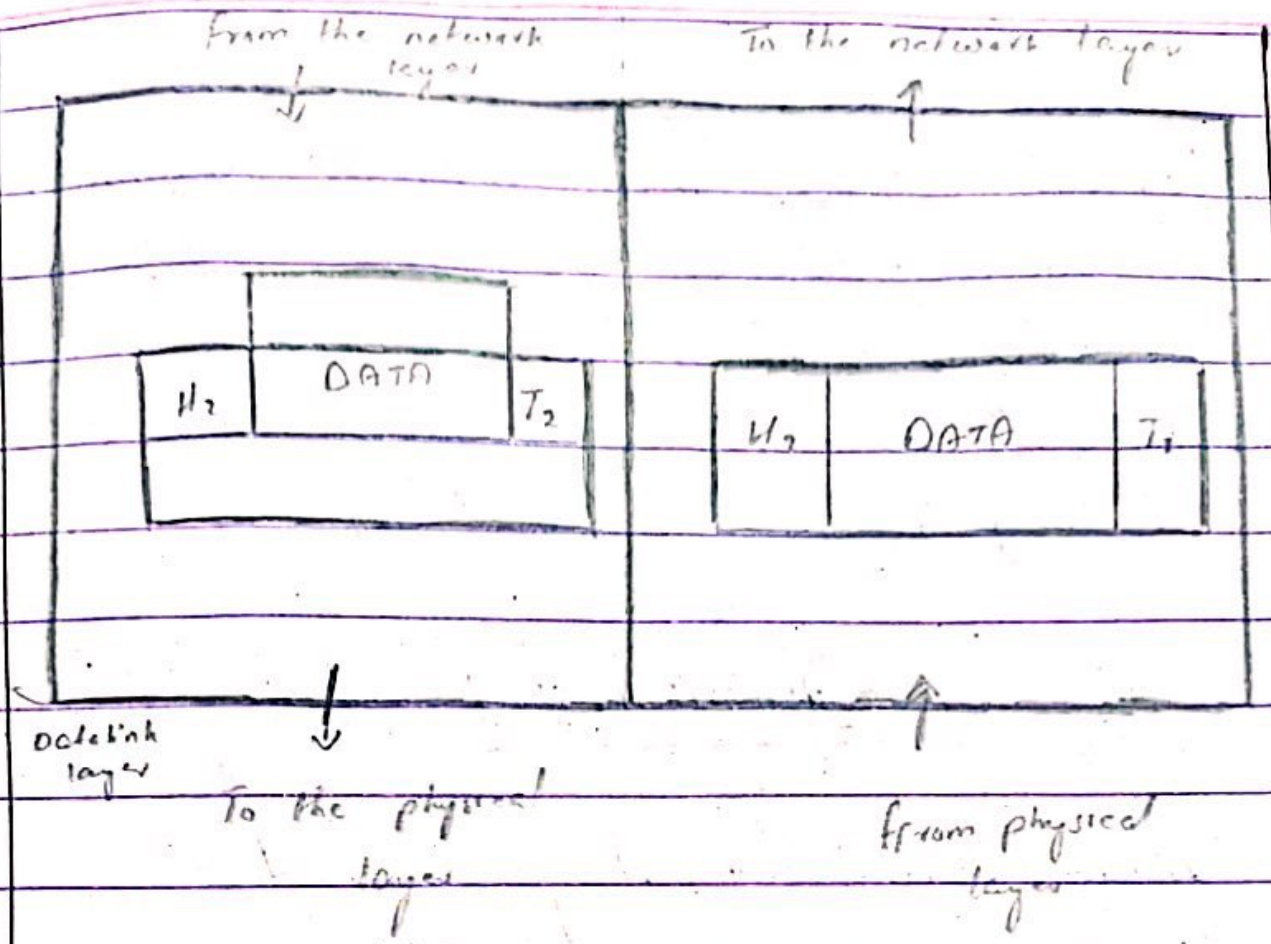 from the network
layer
To the network layer
DATA
H2
T2
H2
DATA
T1
Datalink
layer
To the physical
layer
ffrom physical
layer